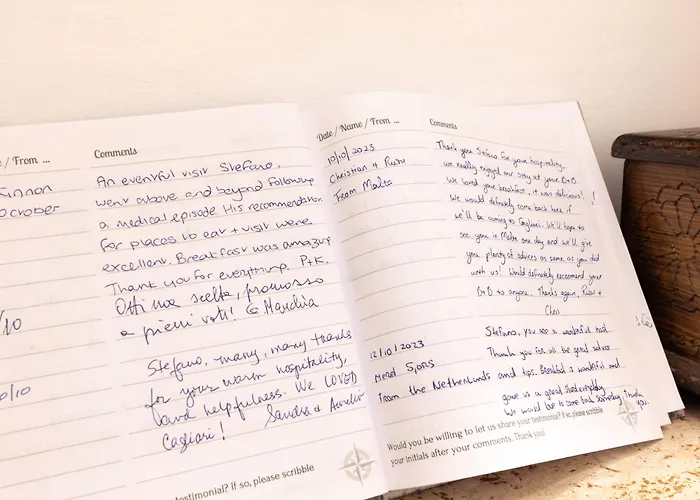 e / From ...
Comments
Kinnon
October
/10
0/10
An eventful visit Stefano.
went above and beyond following
a medical episode His recommendation
for places to eat + visit were
excellent. Breakfast was amazing
Thank you for everything. P+K.
Ottima scelta, promosso
a pieni voti! G Maudia
Stefano, many, many thanks
for your warm hospitality,
and helpfulness. We LOVED
Cagliari! Sandra & Aurelio
testimonial? If so, please scribble
Date / Name / From ...
Comments
10/10/2023
Christian + Ruth
From Malta
Thank you Stefano for your hospitality,
we really enjoyed our stay at your B&B.
We loved your breakfast, it was delicious!
We would definately come back here if
we'll be coming to Cagliari. We'll hope to
see you in Malta one day and we'll give
you plenty of advices as same as you did
with us! Would definately reccomend your
B&B to anyone. Thanks again, Ruth +
Chris
12/10/2023
Merel Spons
From the Netherlands
Stefano, you are a wonderful host
Thank you for all the good advice
and tips. Breakfast is wonderful and
gave us a great start everyday.
We would love to come back someday. Thank
you.
Would you be willing to let us share your testimonial? If so, please scribble
your initials after your comments. Thank you!